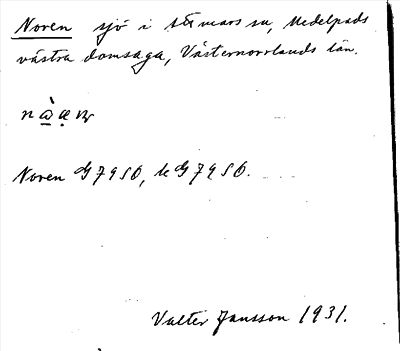 Noren sjö i Stermars sn, Medelpads
västra domsaga, Västernorrlands län.
Noren G 7950, k G 7950.
Valter Jansson 1931.